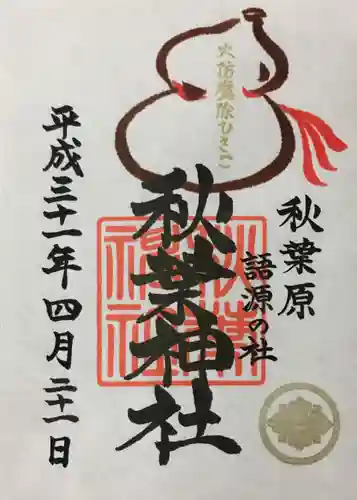 火防魔除ひさご
秋葉原
語源の社
秋葉神社
平成三十一年四月二十一日